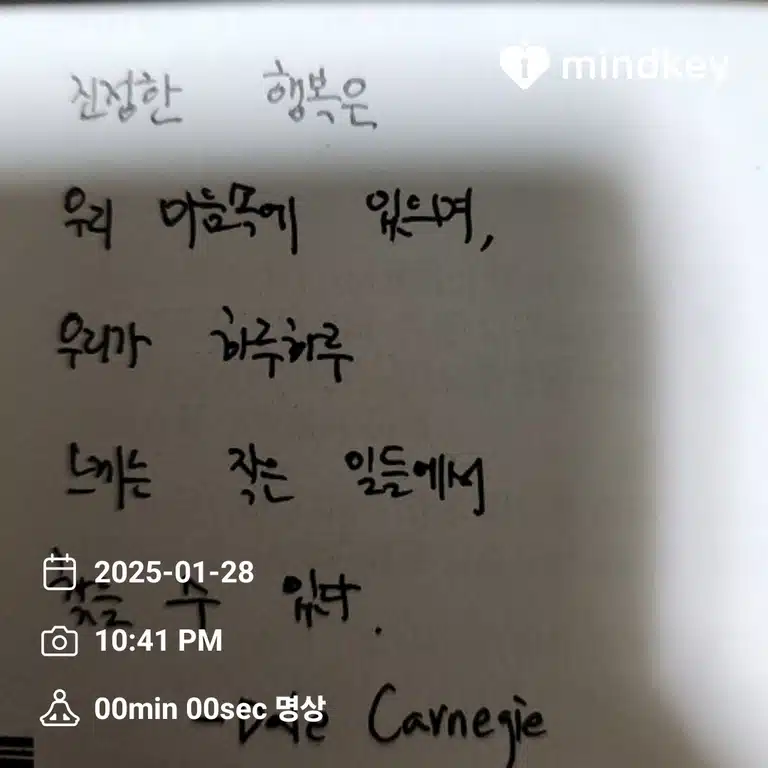 mindkey
진정한 행복은
우리 마음속에 있으며,
우리가 하루하루
느끼는 작은 일들에서
찾을 수 있다.
2025-01-28
10:41 PM
00min 00sec 명상
-Dale Carnegie